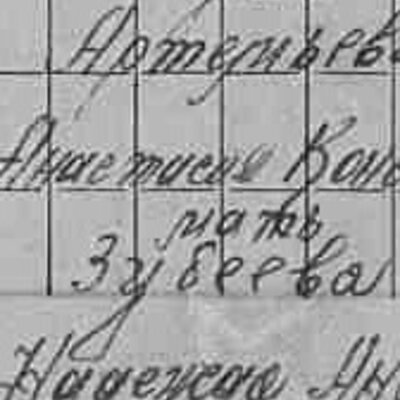 Артемьева
Анастасия Конс
мать
Зубеева
Надежда Ан